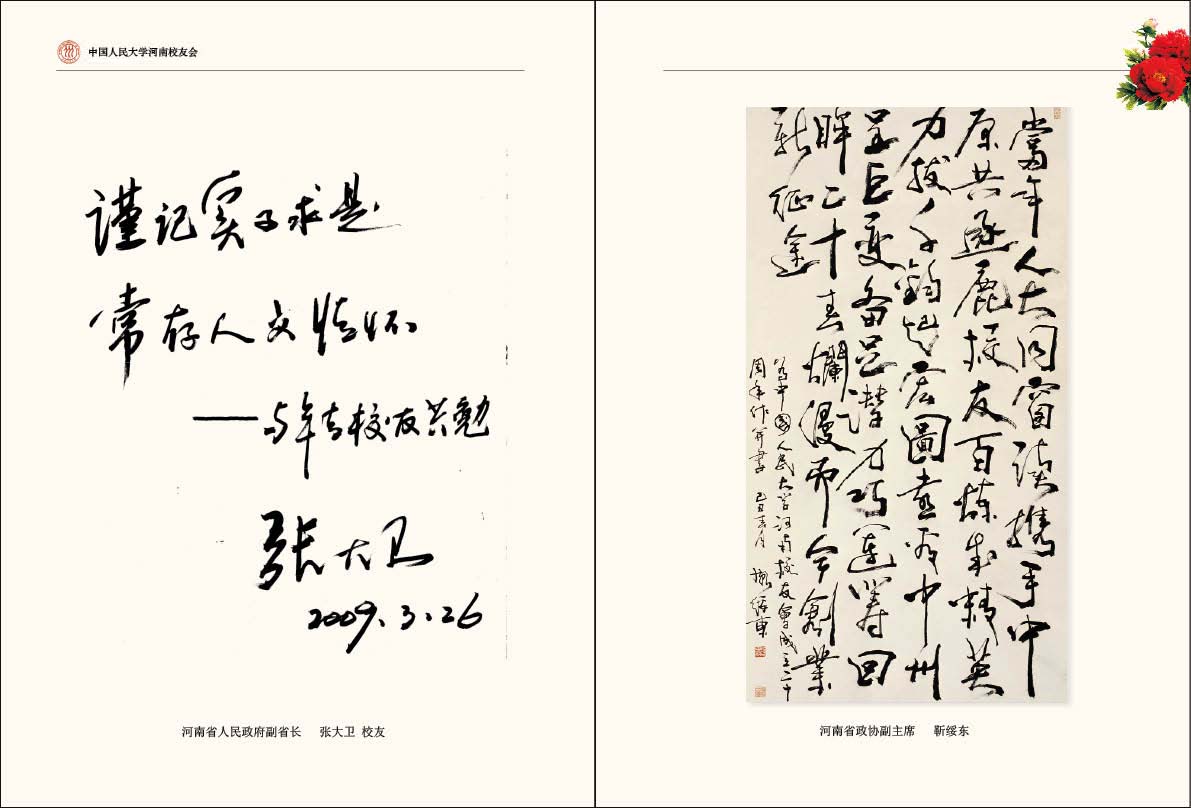 中国人民大学河南校友会
谨记实事求是
常存人文情怀
——与年青校友共勉
张大卫
2009.3.26
河南省人民政府副省长 张大卫 校友
當年人大同窗读携手中
原共逐鹿校友百炼成精英
力拔千钧起宏圖意氣中州
呈巨變奋足潜力巧運筹回
眸二十春爛漫而今創業
新征途
为中國人民大学河南校友會成立二十
周年作并書 己丑春月 靳绥東
河南省政协副主席 靳绥东